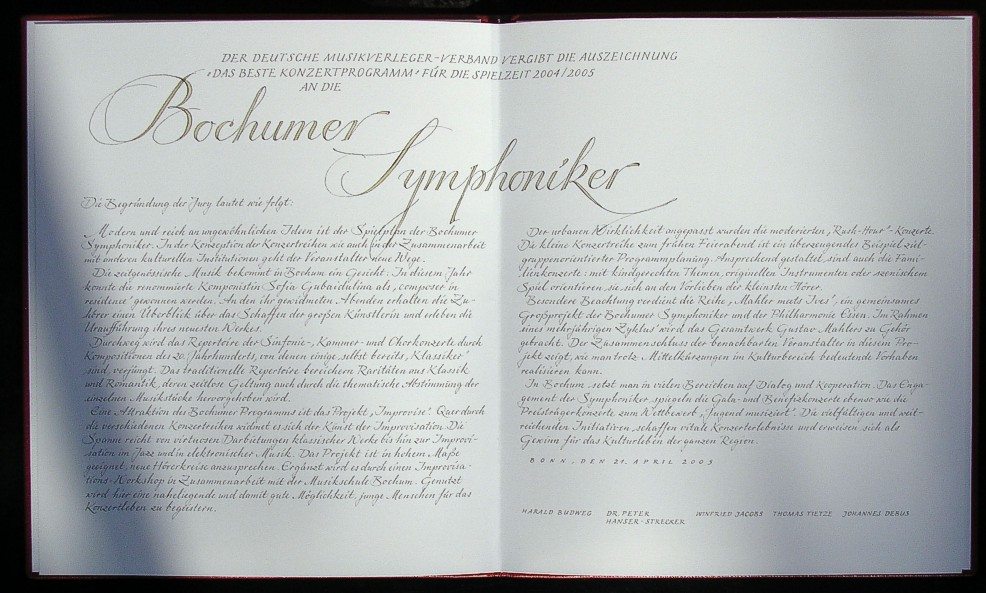 DER DEUTSCHE MUSIKVERLEGER-VERBAND VERGIBT DIE AUSZEICHNUNG
›DAS BESTE KONZERTPROGRAMM‹ FÜR DIE SPIELZEIT 2004/2005
AN DIE
Bochumer
Symphoniker
Die Begründung der Jury lautet wie folgt:
Modern und reich an ungewöhnlichen Ideen ist der Spielplan der Bochumer
Symphoniker. In der Konzeption der Konzertreihen wie auch in der Zusammenarbeit
mit anderen kulturellen Institutionen geht der Veranstalter neue Wege.
Die zeitgenössische Musik bekommt in Bochum ein Gesicht: In diesem Jahr
konnte die renommierte Komponistin Sofia Gubaidulina als ‚composer in
residence' gewonnen werden. An den ihr gewidmeten Abenden erhalten die Zu-
hörer einen Überblick über das Schaffen der großen Künstlerin und erleben die
Uraufführung ihres neuesten Werkes.
Durchweg wird das Repertoire der Sinfonie-, Kammer- und Chorkonzerte durch
Kompositionen des 20. Jahrhunderts, von denen einige selbst bereits ‚Klassiker'
sind, verjüngt. Das traditionelle Repertoire bereichern Raritäten aus Klassik
und Romantik, deren zeitlose Geltung auch durch die thematische Abstimmung der
einzelnen Musikstücke hervorgehoben wird.
Eine Attraktion des Bochumer Programms ist das Projekt ‚Improvise!'. Quer durch
die verschiedenen Konzertreihen widmet es sich der Kunst der Improvisation. Die
Spanne reicht von virtuosen Darbietungen klassischer Werke bis hin zur Improvi-
sation im Jazz und in elektronischer Musik. Das Projekt ist in hohem Maße
geeignet, neue Hörerkreise anzusprechen. Ergänzt wird es durch einen Improvisa-
tions-Workshop in Zusammenarbeit mit der Musikschule Bochum. Genutzt
wird hier eine naheliegende und damit gute Möglichkeit, junge Menschen für das
Konzertleben zu begeistern.
Der urbanen Wirklichkeit angepasst wurden die moderierten ‚Rush-Hour'-Konzerte.
Die kleine Konzertreihe zum frühen Feierabend ist ein überzeugendes Beispiel ziel-
gruppenorientierter Programmplanung. Ansprechend gestaltet sind auch die Fami-
lienkonzerte: mit kindgerechten Themen, originellen Instrumenten oder szenischem
Spiel orientieren sie sich an den Vorlieben der kleinsten Hörer.
Besondere Beachtung verdient die Reihe ‚Mahler meets Ives', ein gemeinsames
Großprojekt der Bochumer Symphoniker und der Philharmonie Essen. Im Rahmen
eines mehrjährigen Zyklus' wird das Gesamtwerk Gustav Mahlers zu Gehör
gebracht. Der Zusammenschluss der benachbarten Veranstalter in diesem Pro-
jekt zeigt, wie man trotz Mittelkürzungen im Kulturbereich bedeutende Vorhaben
realisieren kann.
In Bochum setzt man in vielen Bereichen auf Dialog und Kooperation. Das Enga-
gement der Symphoniker spiegeln die Gala- und Benefizkonzerte ebenso wie die
Preisträgerkonzerte zum Wettbewerb ‚Jugend musiziert'. Die vielfältigen und weit-
reichenden Initiativen schaffen vitale Konzerterlebnisse und erweisen sich als
Gewinn für das Kulturleben der ganzen Region.
BONN, DEN 21. APRIL 2005
HARALD BUDWEG DR. PETER HANSER-STRECKER WINFRIED JACOBS THOMAS TIETZE JOHANNES DEBUS